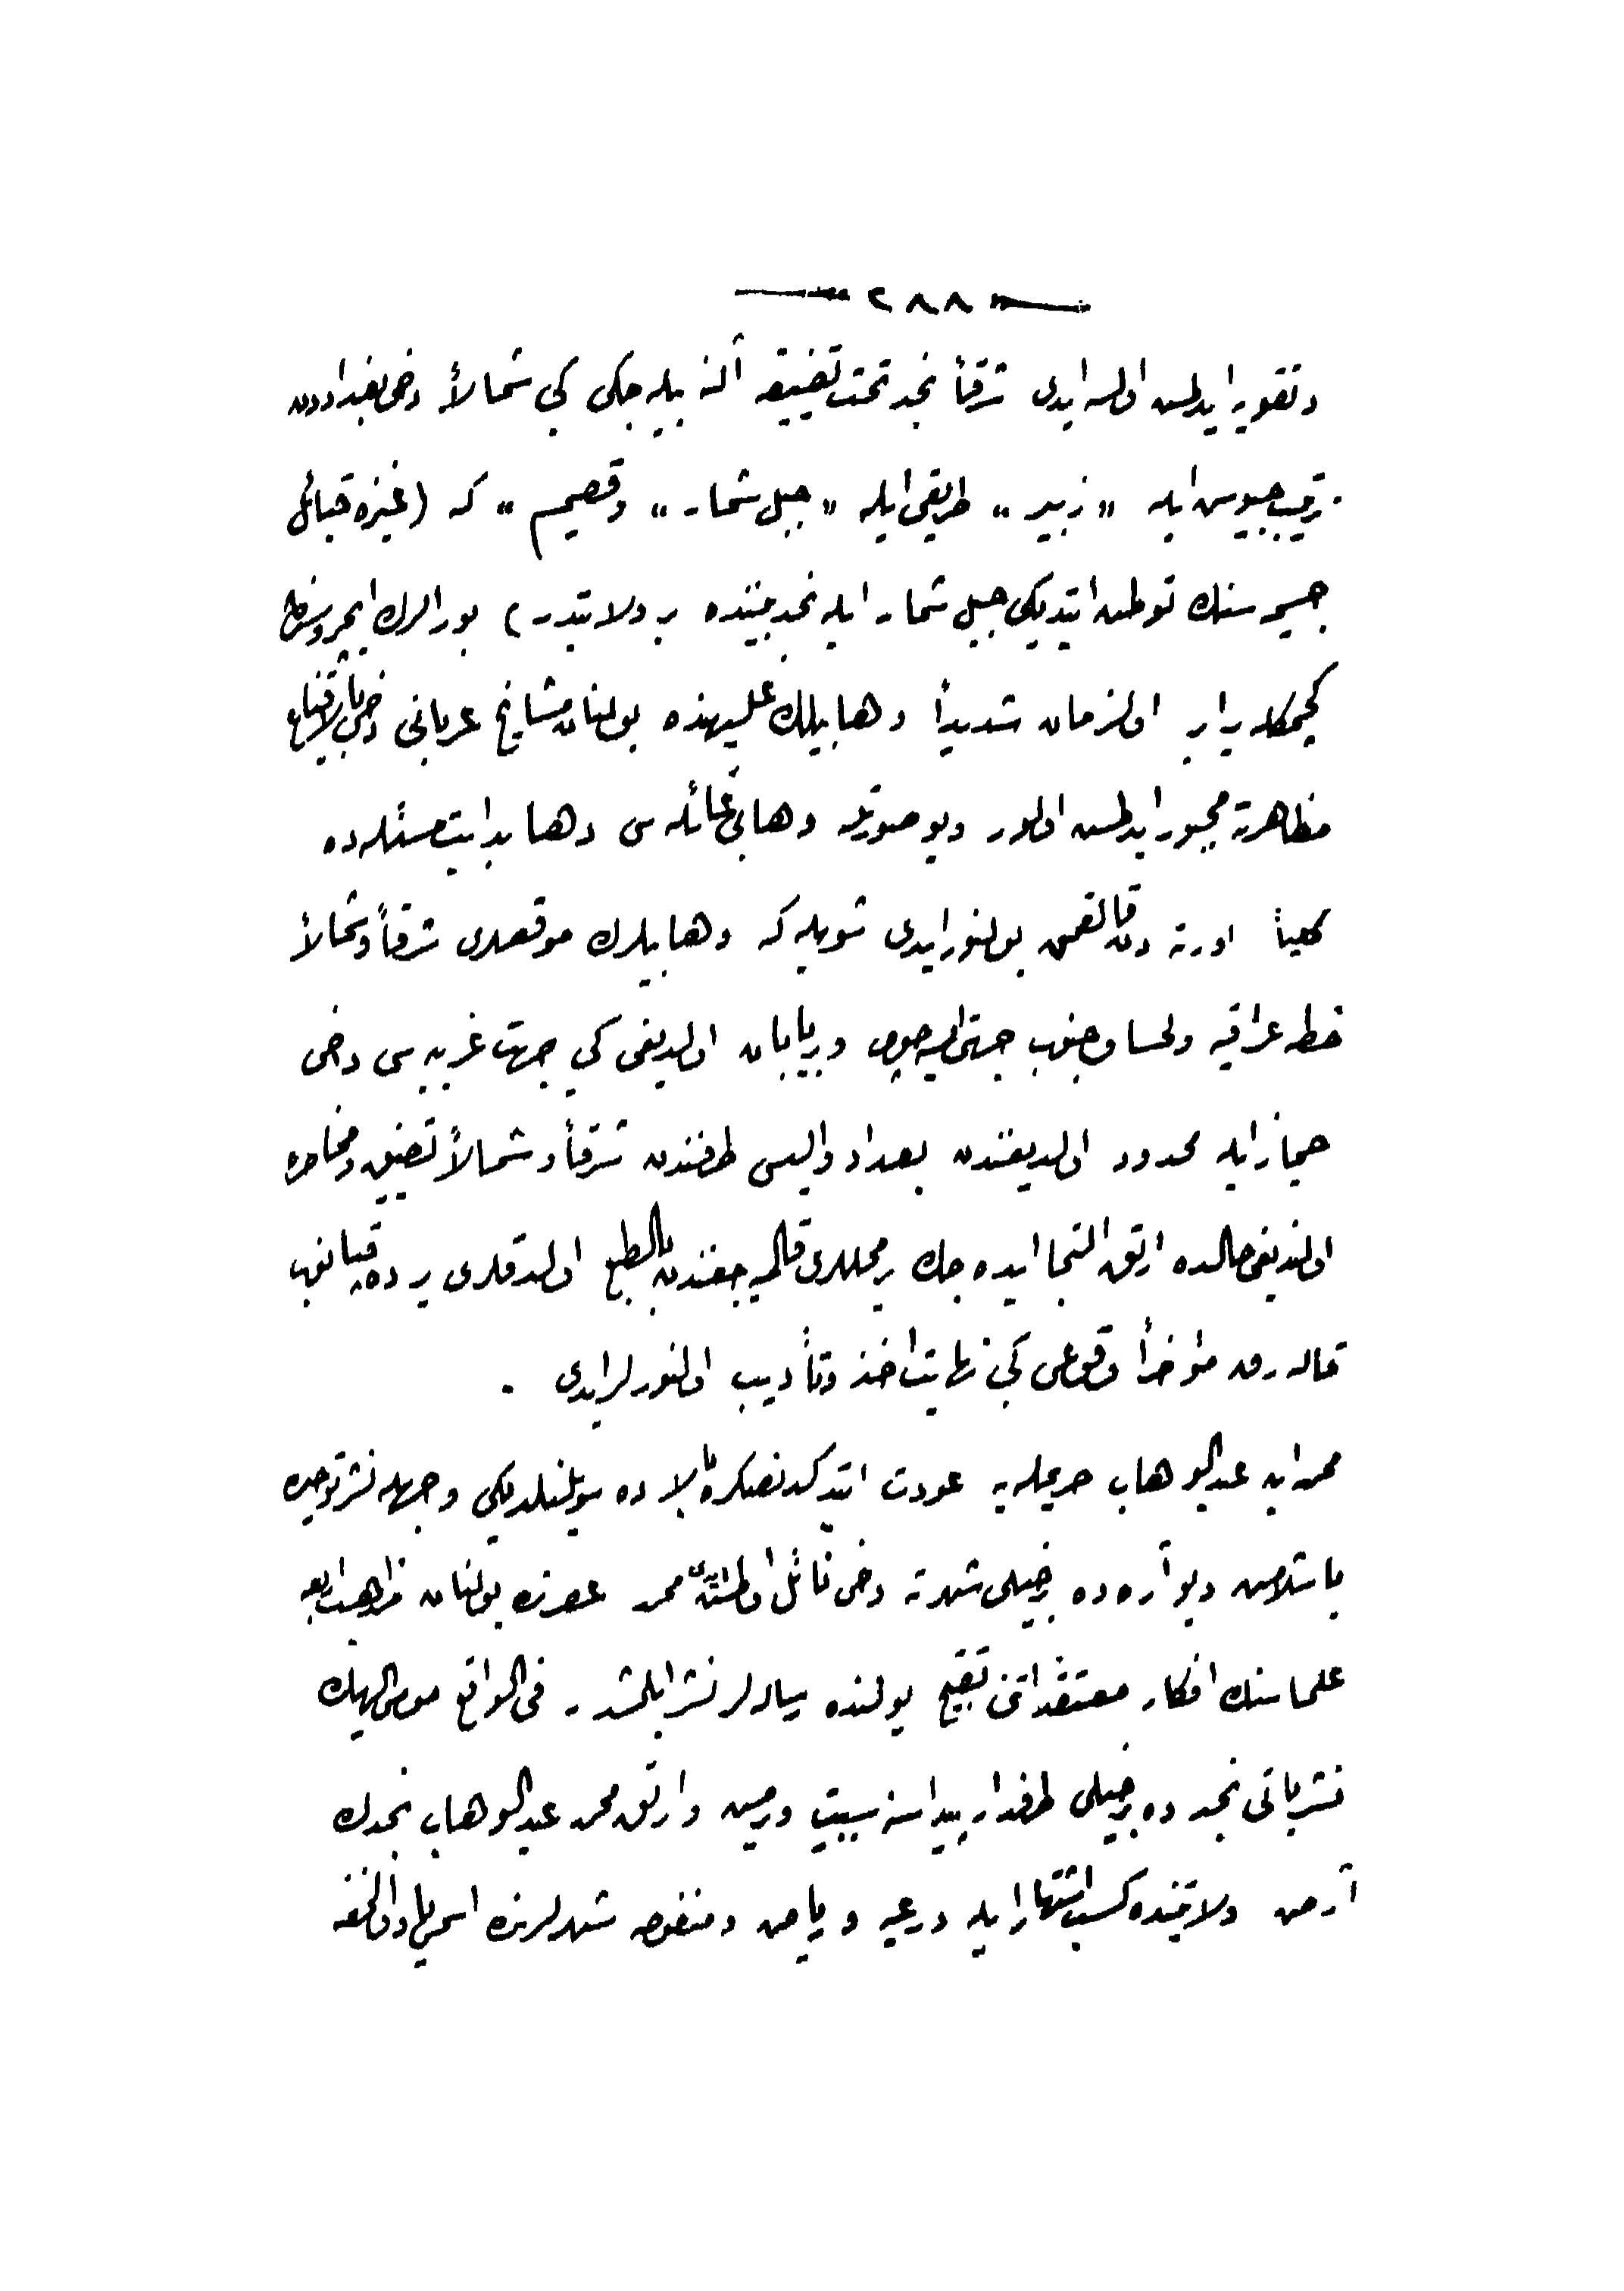 ٢٨٨
و تقویه ایدلمش اولسه ایدی شرقاً نجد تحت تضییقه آلنه بیله جکی کبی شمالاً دخی بغداددن
ترتیب جیوش ایله «زبیر» طریقی ایله «جبل شمار» و قصیم» که (غیزه قبائل
جسیمه سنك توطن ایتدیکی جبل شمار ایله نجد بیننده بر ولایتدر) بورالرك ایچروسنه
کچیمکله برابر اولزمان شدیداً وهابیلك علیهنده بولنان مشایخ عربانی دخی بالاقناع
مظاهرته مجبور ایدلمش اولور و بو صورتله وهابی غائله سی دها بدایت مسئله ده
کلیاً اورته دن قالقمش بولنور ایدی شویله که وهابیلرك موقعلری شرقاً و شمالاً
خطه عراقیه و لحسا و جنوب جهتی ایسه چول و بیابان اولدیغی کبی جهت غربیه سی دخی
حجاز ایله محدود اولدیغندن بغداد والیسی طرفندن شرقاً و شمالاً تضییق و محاصره
اولندیغی حالده ارتق التجا ایده جك بر محللری قالمیه جغندن بالطبع اولدقلری یرده قپانوب
قاله رق مؤخراً وقوعی کبی نهایت اخذ و تأدیب اولنورلر ایدی .
محمد ابن عبدالوهاب حریمله یه عودت ایتدکدنصکره بالاده سویلنلدیکی وجهله نشر توحیده
باشلامش و بو آره ده خیلی شهرته دخی نائل اولمشیدی محمد عصرنده بولنان مذاهب اربعه
علماسنك افکار و معتقداتنی تقبیح یولنده رساله لر نشر ایلمشدر . فی الواقع مومی الیهك
نشریاتی نجد ده خیلی طرفدار پیدا سنه سببیت ویرمش و ارتق محمد عبدالوهاب نجدك
آرض ولایتنده کسب اشتهار ایله درعیه و ریاض و منفوحه شهرلرنده اسمی یاد اولنمغه